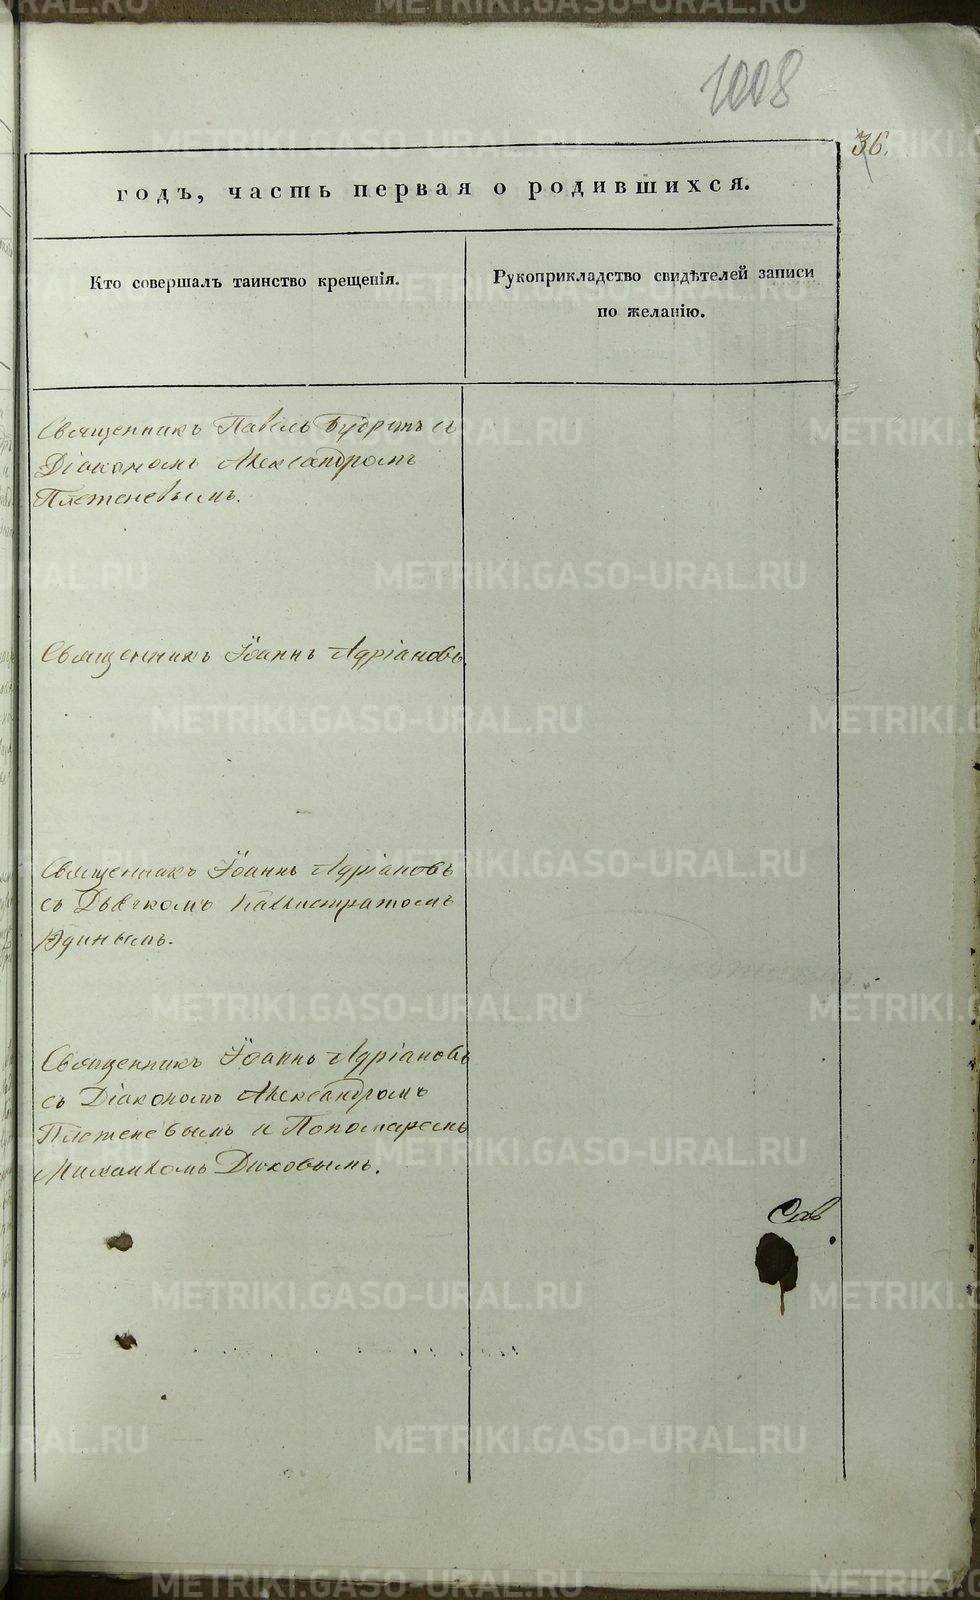 1008
36.
годъ, часть первая о родившихся.
Кто совершалъ таинство крещенія.
Рукоприкладство свидѣтелей записи
по желанію.
Священникъ Павелъ съ
Діакономъ Александромъ
Плетеневымъ.
Священникъ Іоаннъ Адріановъ.
Священникъ Іоаннъ Адріановъ
съ Дьячкомъ Каллистратомъ
Юдинымъ.
Священникъ Іоаннъ Адріановъ
съ Діакономъ Александромъ
Плетеневымъ и Пономаремъ
Михаиломъ Диковымъ.
METRIKI.GASO-URAL.RU